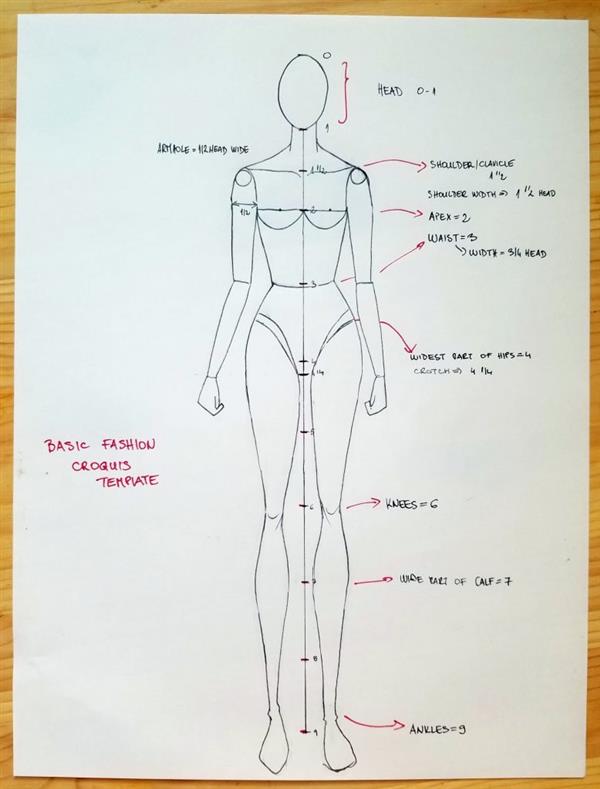 0
HEAD 0-1
1
ARMHOLE = 1/2 HEAD WIDE
SHOULDER/CLAVICLE
1 1/2
1 1/2
SHOULDER WIDTH => 1 1/2 HEAD
1/2
2
APEX = 2
WAIST = 3
WIDTH = 3/4 HEAD
3
WIDEST PART OF HIPS = 4
CROTCH => 4 1/4
4
4 1/4
5
BASIC FASHION
CROQUIS
TEMPLATE
6
KNEES = 6
7
WIDE PART OF CALF = 7
8
9
ANKLES = 9